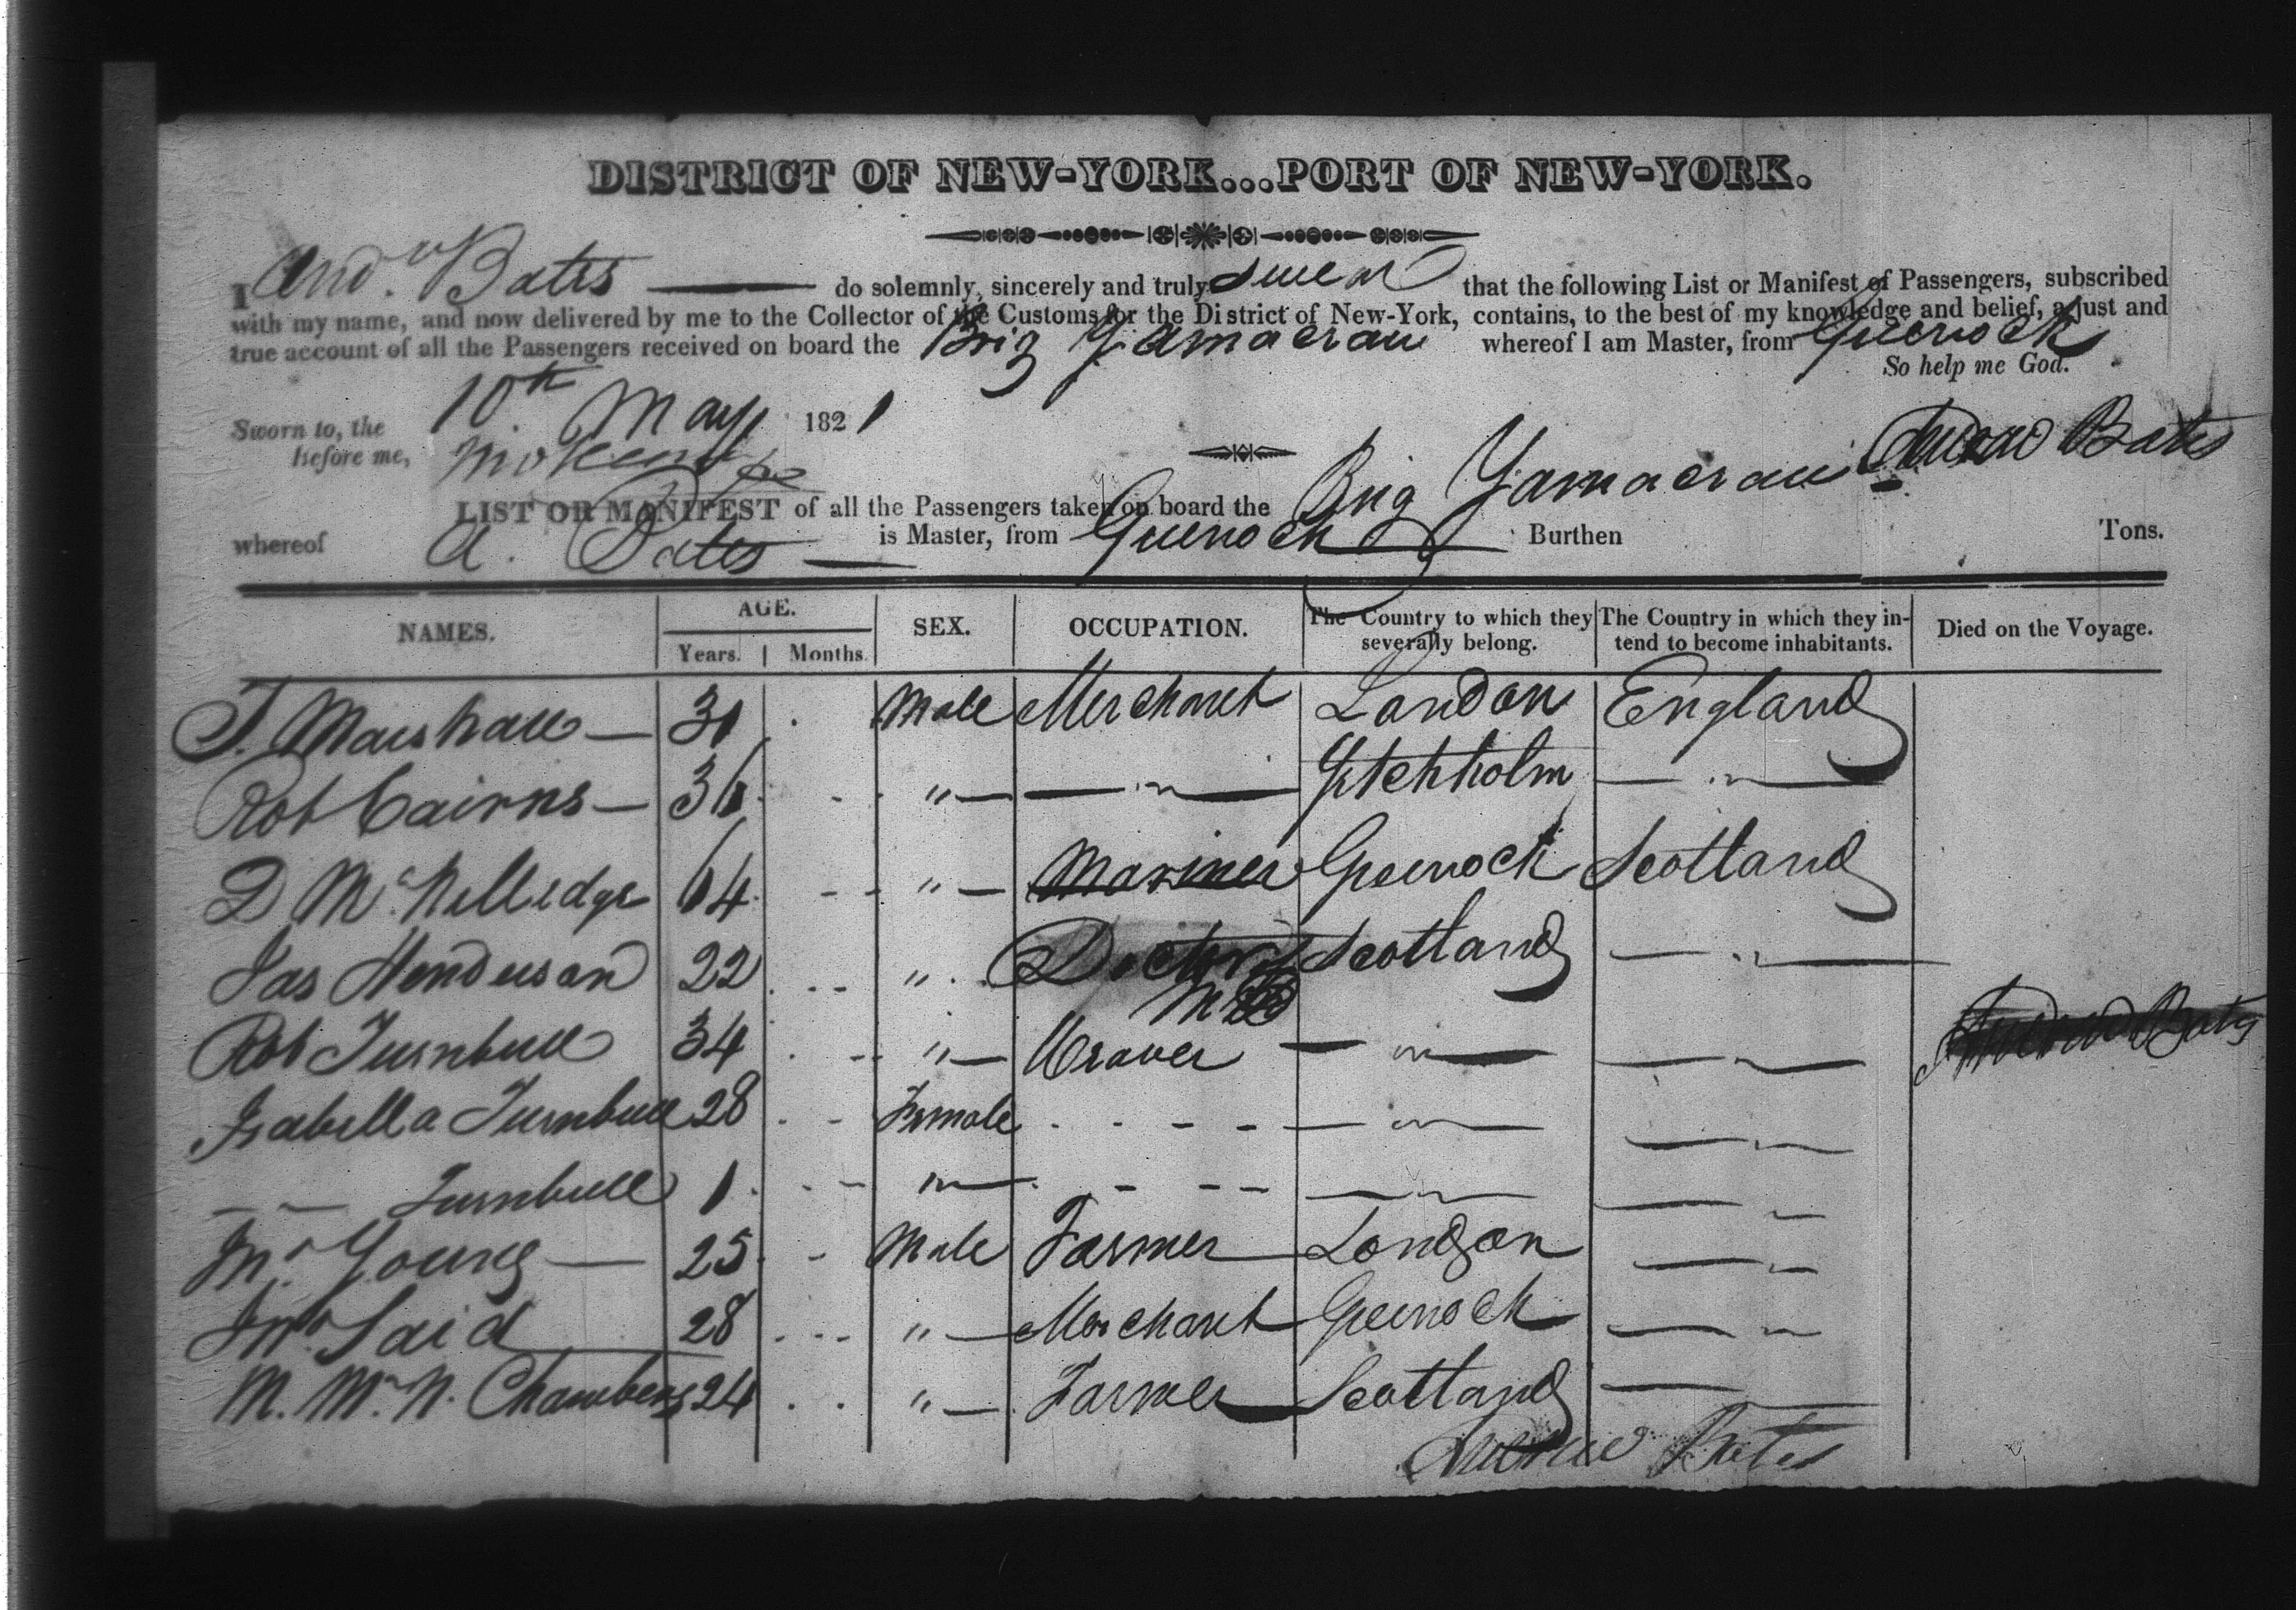 DISTRICT OF NEW-YORK...PORT OF NEW-YORK.
I And.w Bates do solemnly, sincerely and truly swear that the following List or Manifest of Passengers, subscribed
with my name, and now delivered by me to the Collector of the Customs for the District of New-York, contains, to the best of my knowledge and belief, a just and
true account of all the Passengers received on board the Brig Yamacraw whereof I am Master, from Greenock
So help me God.
Sworn to, the 10th May 1821
before me,
Andrew Bates
LIST OR MANIFEST of all the Passengers taken on board the Brig Yamacraw
whereof A. Bates is Master, from Greenock Burthen Tons.
NAMES. AGE. SEX. OCCUPATION. The Country to which they severally belong. The Country in which they intend to become inhabitants. Died on the Voyage.
Years. Months.
T. Marshall 31 Male Merchant London England
Rob Cairns 36 " " "
D Mc 64 " Mariner Greenock Scotland
Jas Henderson 22 " Doctor Scotland "
Rob Turnbull 34 " Weaver " "
Andrew Bates
Isabella Turnbull 28 Female " "
Turnbull 1 " " "
Mr Young 25 Male Farmer London "
Jno Said 28 " Merchant Greenock "
M. Mc N. Chambers 24 " Farmer Scotland "
Andrew Bates